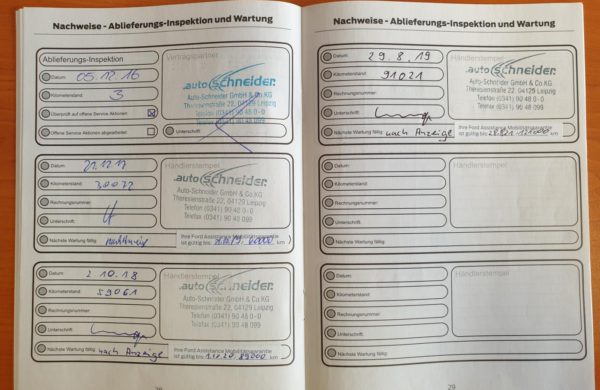 Nachweise - Ablieferungs-Inspektion und Wartung
Ablieferungs-Inspektion
Datum: 05.12.16
Kilometerstand: 3
Überprüft auf offene Service Aktionen
Offene Service Aktionen abgearbeitet
Vertragspartner
auto schneider.
Auto-Schneider GmbH & Co.KG
Theresienstraße 22, 04129 Leipzig
Telefon (0341) 90 48 0-0
Telefax (0341) 90 48 099
Unterschrift
Datum:
Kilometerstand:
Rechnungsnummer:
Unterschrift:
Nächste Wartung fällig:
Händlerstempel
auto schneider.
Auto-Schneider GmbH & Co.KG
Theresienstraße 22, 04129 Leipzig
Telefon (0341) 90 48 0-0
Telefax (0341) 90 48 099
Ihre Ford Assistance Mobilitätsgarantie
ist gültig bis: 60000 km
Datum: 2 10.18
Kilometerstand: 59061
Rechnungsnummer:
Unterschrift:
Nächste Wartung fällig: nach Anzeige
Händlerstempel
auto schneider.
Auto-Schneider GmbH & Co.KG
Theresienstraße 22, 04129 Leipzig
Telefon (0341) 90 48 0-0
Telefax (0341) 90 48 099
Ihre Ford Assistance Mobilitätsgarantie
ist gültig bis: 89000 km
Nachweise - Ablieferungs-Inspektion und Wartung
Datum: 29.8.19
Kilometerstand: 91021
Rechnungsnummer:
Unterschrift:
Nächste Wartung fällig: nach Anzeige
Händlerstempel
auto schneider.
Auto-Schneider GmbH & Co.KG
Theresienstraße 22, 04129 Leipzig
Telefon (0341) 90 48 0-0
Telefax (0341) 90 48 099
Ihre Ford Assistance Mobilitätsgarantie
ist gültig bis: km
Datum:
Kilometerstand:
Rechnungsnummer:
Unterschrift:
Nächste Wartung fällig:
Händlerstempel
Datum:
Kilometerstand:
Rechnungsnummer:
Unterschrift:
Nächste Wartung fällig:
Händlerstempel
29